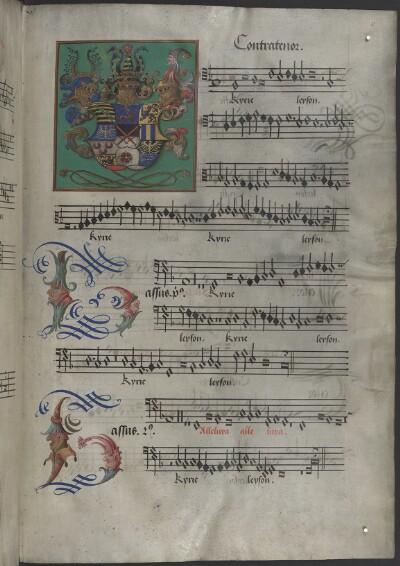 Contratenor.
Kyrie leyson.
Kyrie Kyrie leyson.
Bassus. p°. Kyrie
leyson. Kyrie leyson.
Kyrie leyson.
Bassus. 2°. Alleluya alle luya.
Kyrie leyson.